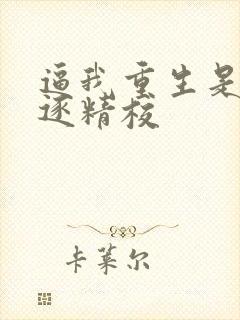 逼我重生是
逐精校
卡莱尔